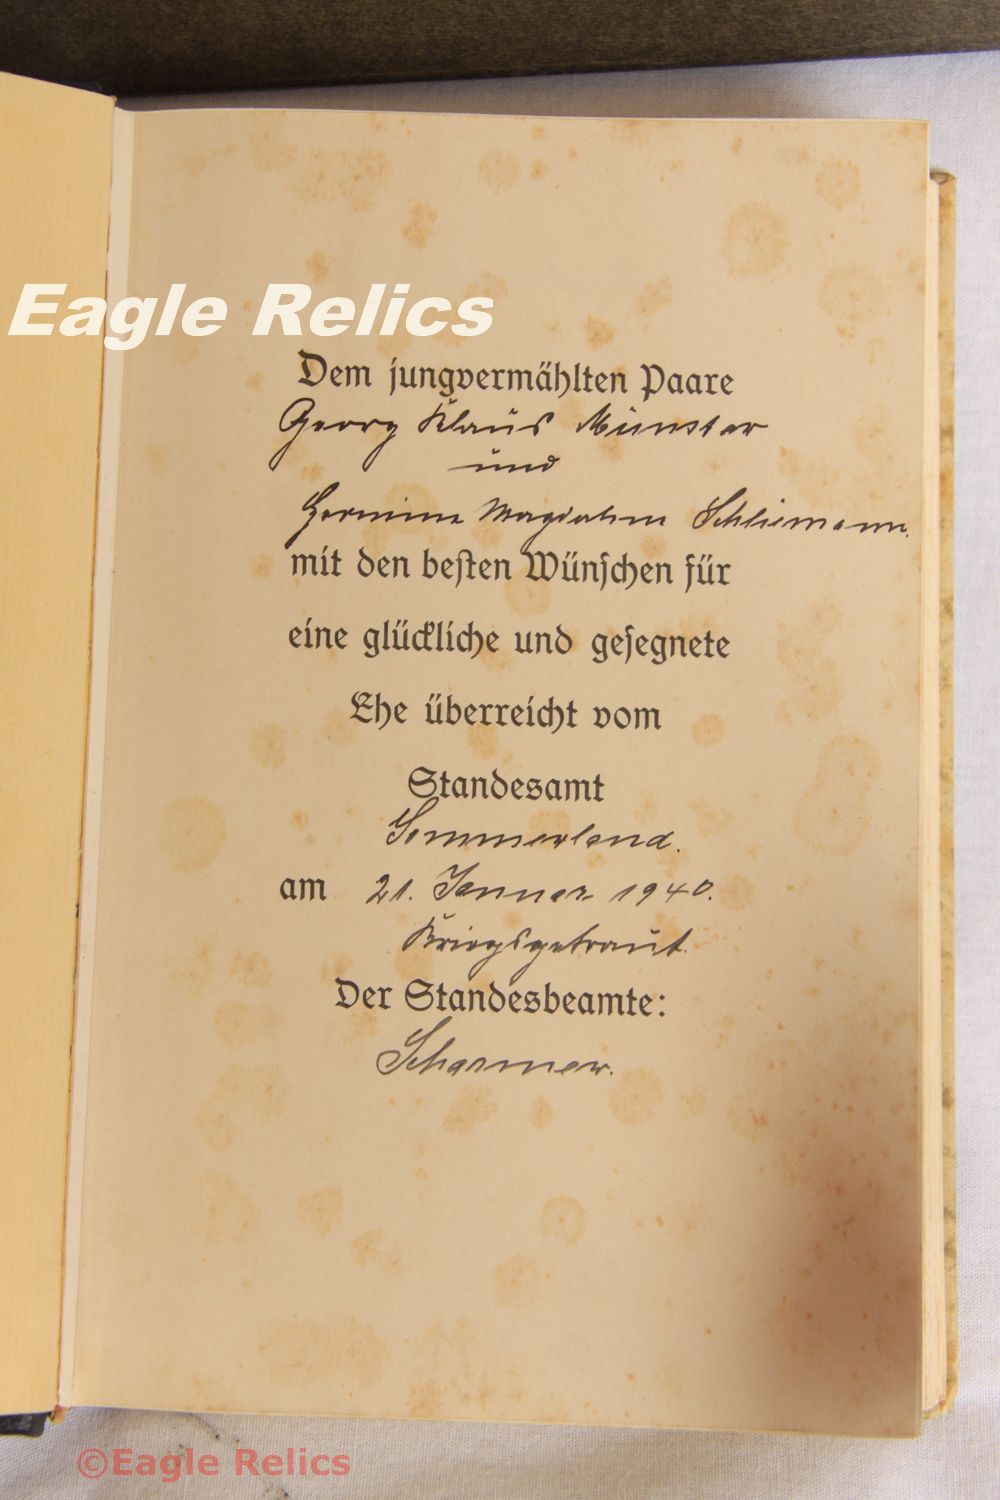 Eagle Relics
Dem jungvermählten Paare
Georg Klaus Münster
und
Hermine Magdalena Schliemann.
mit den besten Wünschen für
eine glückliche und gesegnete
Ehe überreicht vom
Standesamt
Sommerland.
am 21. Januar 1940.
Kriegsgetraut.
Der Standesbeamte:
©Eagle Relics